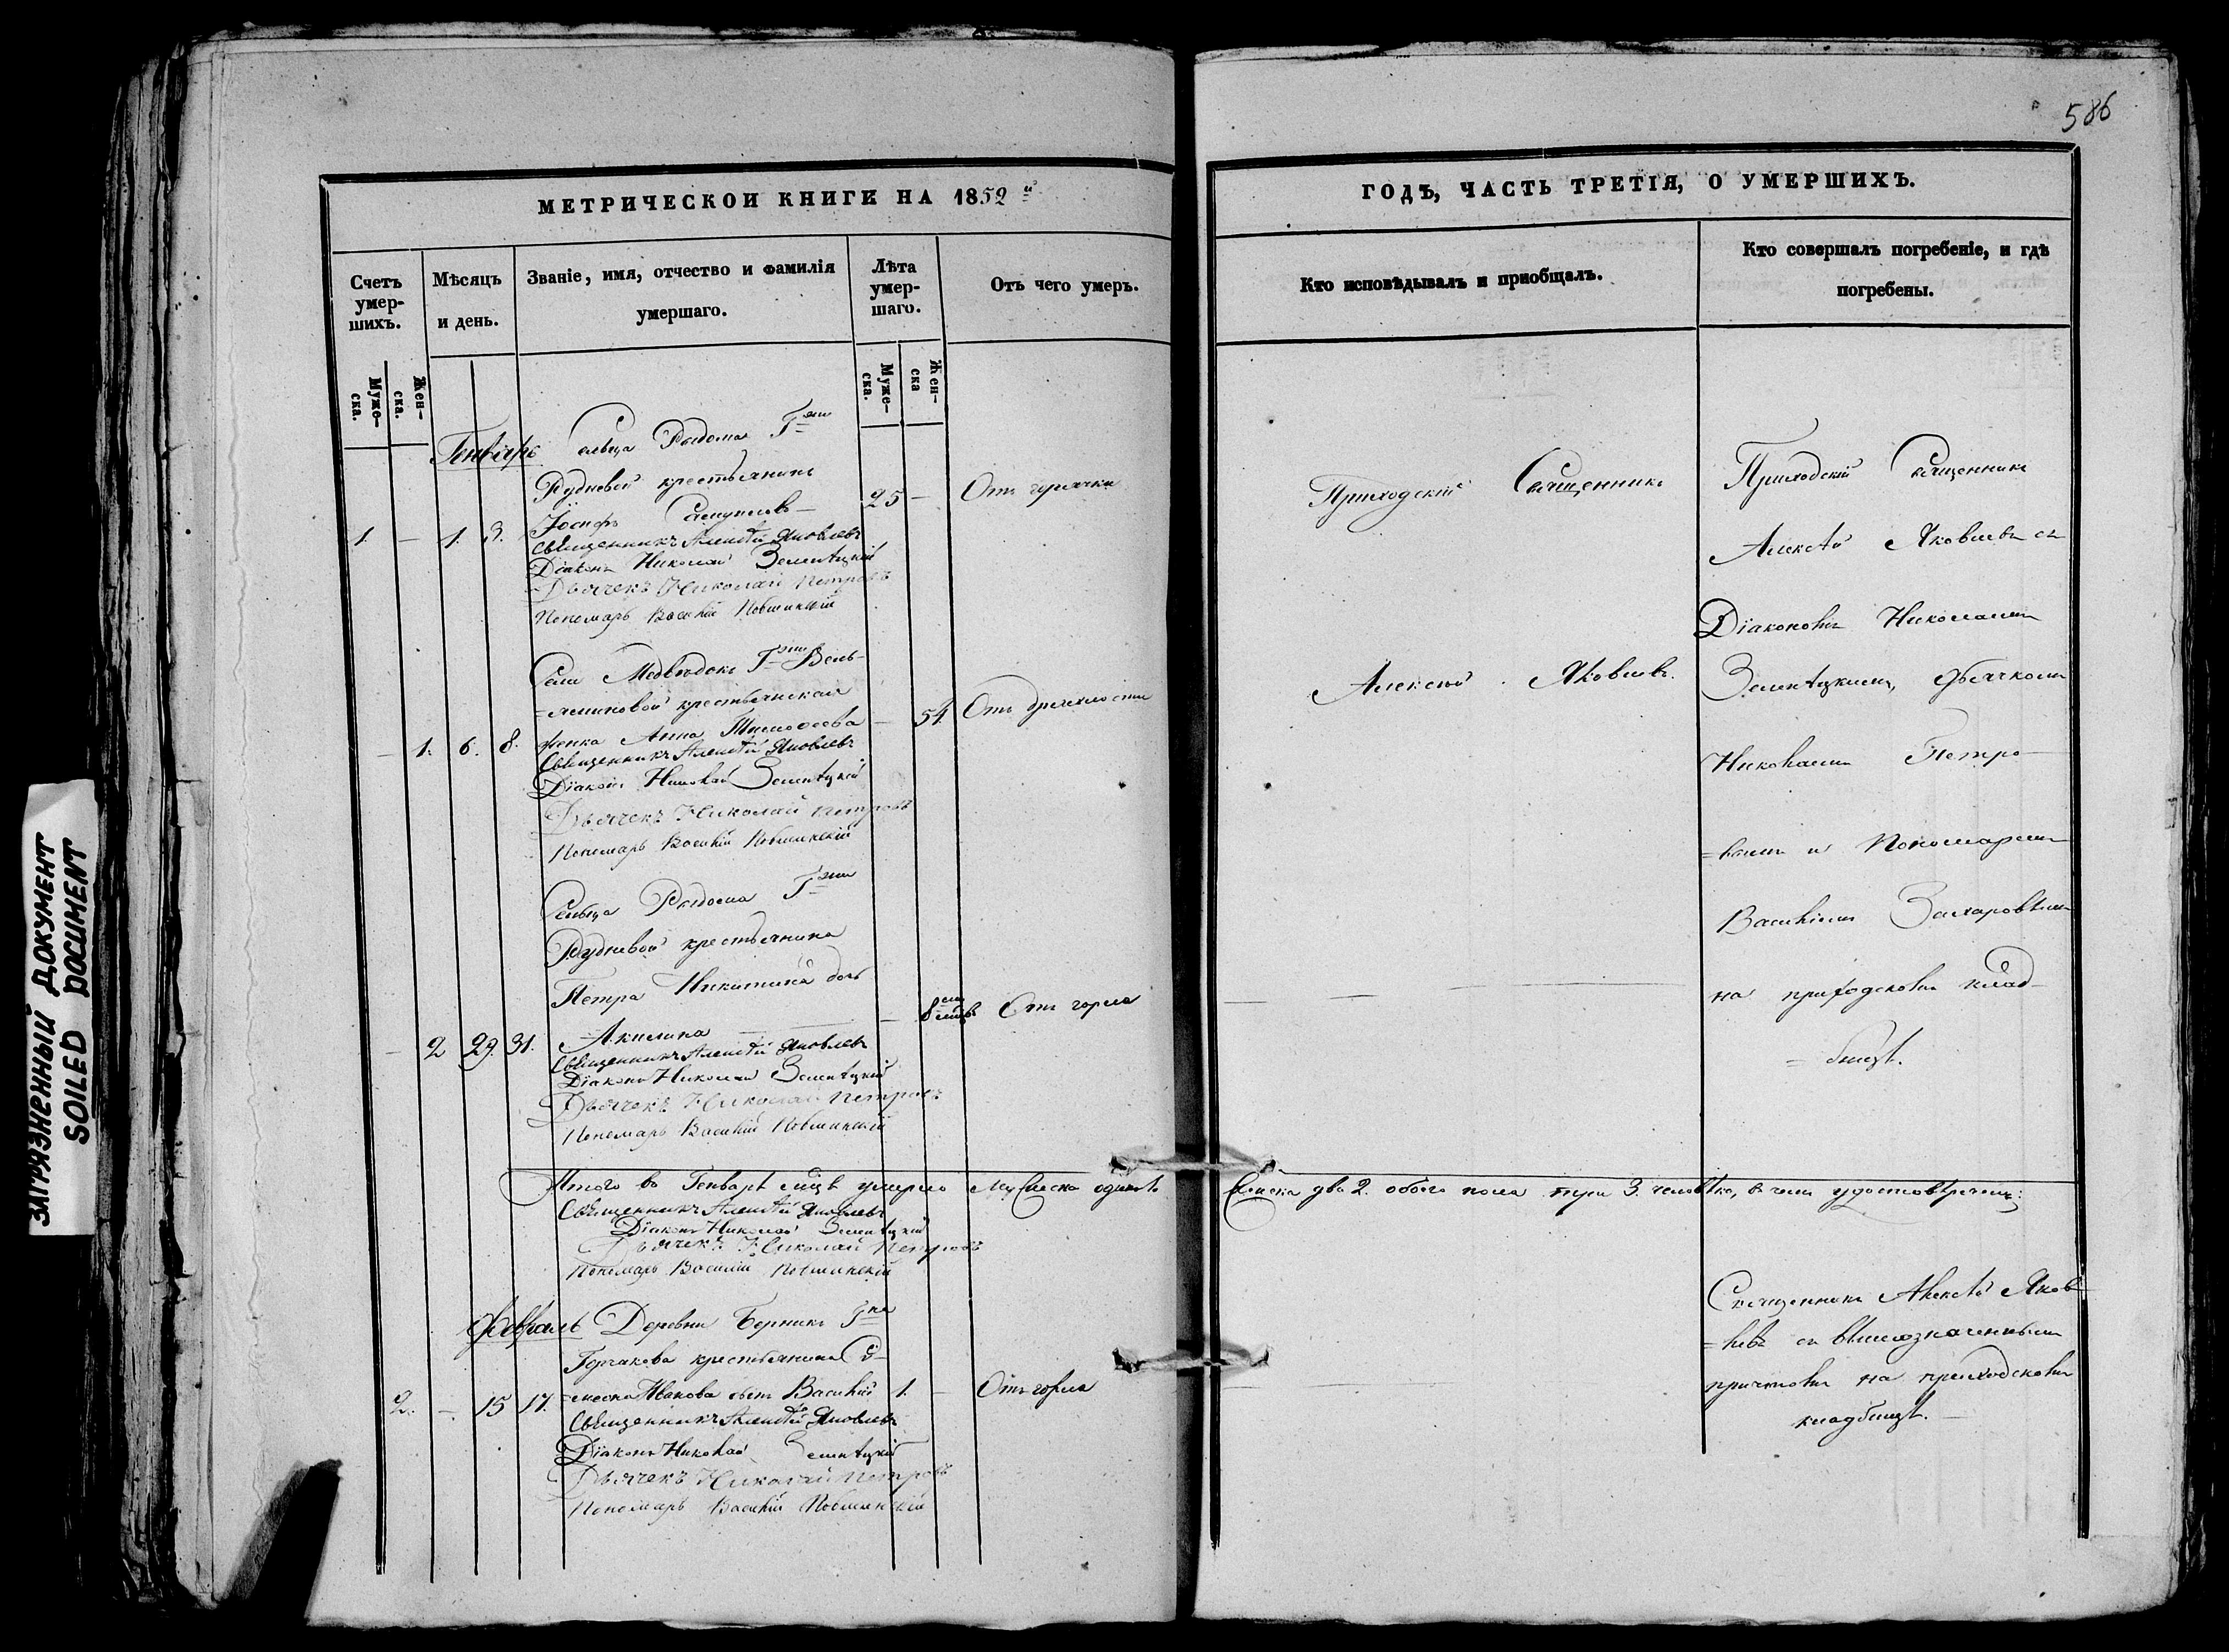 586
МЕТРИЧЕСКОИ КНИГИ НА 1852й
ГОДЪ, ЧАСТЬ ТРЕТІЯ, О УМЕРШИХЪ.
Счетъ умер-
шихъ.
Мѣсяцъ
и день.
Званіе, имя, отчество и фамилія
умершаго.
Лѣта
умер-
шаго.
Отъ чего умеръ.
Кто исповѣдывалъ и приобщалъ.
Кто совершалъ погребеніе, и гдѣ
погребены.
Муже-
ска.
Жен-
ска.
Муже-
ска.
Жен-
ска
Генварь
Сельца Г=жи
Рудневой крестьянинъ
1. — 1. 3. Іосифъ 25 — Отъ горячки
Священникъ Алексѣй Яковлевъ
Діаконъ Николай Зеленецкій
Дьячекъ Николай Петровъ
Пономарь Василій
Села Медвѣдокъ Г=жи Вель-
=яминовой крестьянская
— 1. 6. 8. женка Анна Тимофеева — 54 Отъ дряхлости
Священникъ Алексѣй Яковлевъ
Діаконъ Николай Зеленецкій
Дьячекъ Николай Петровъ
Пономарь Василій
Сельца Г=жи
Рудневой крестьянина
Петра Никитина дочь
— 2 29. 31. Акилина — 8 мцвъ Отъ горла
Священникъ Алексѣй Яковлевъ
Діаконъ Николай Зеленецкій
Дьячекъ Николай Петровъ
Пономарь Василій
Приходскій Священникъ
Алексѣй Яковлевъ.
Приходскій священникъ
Алексѣй Яковлевъ съ
Діакономъ Николаемъ
Зеленецкимъ, дьячкомъ
Николаемъ Петро-
=вымъ и Пономаремъ
Василіемъ Захаровымъ
на приходскомъ клад-
=бищѣ.
Итого въ Генварѣ мцѣ умерло мужеска одинъ
женска два 2. обоего пола три 3. человѣка, въ чемъ удостовѣряемъ:
Священникъ Алексѣй Яковлевъ
Діаконъ Николай Зеленецкій
Дьячекъ Николай Петровъ
Пономарь Василій
Февраль Деревни Берникъ Г=на
Горчакова крестьянина Си-
2. — 15 17. Иванова сынъ Василій 1. — Отъ горла
Священникъ Алексѣй Яковлевъ
Діаконъ Николай Зеленецкій
Дьячекъ Николай Петровъ
Пономарь Василій
Священникъ Алексѣй Яков-
=левъ съ вышеозначеннымъ
причтомъ на приходскомъ
кладбищѣ.
ЗАГРЯЗНЕННЫЙ ДОКУМЕНТ
SOILED DOCUMENT